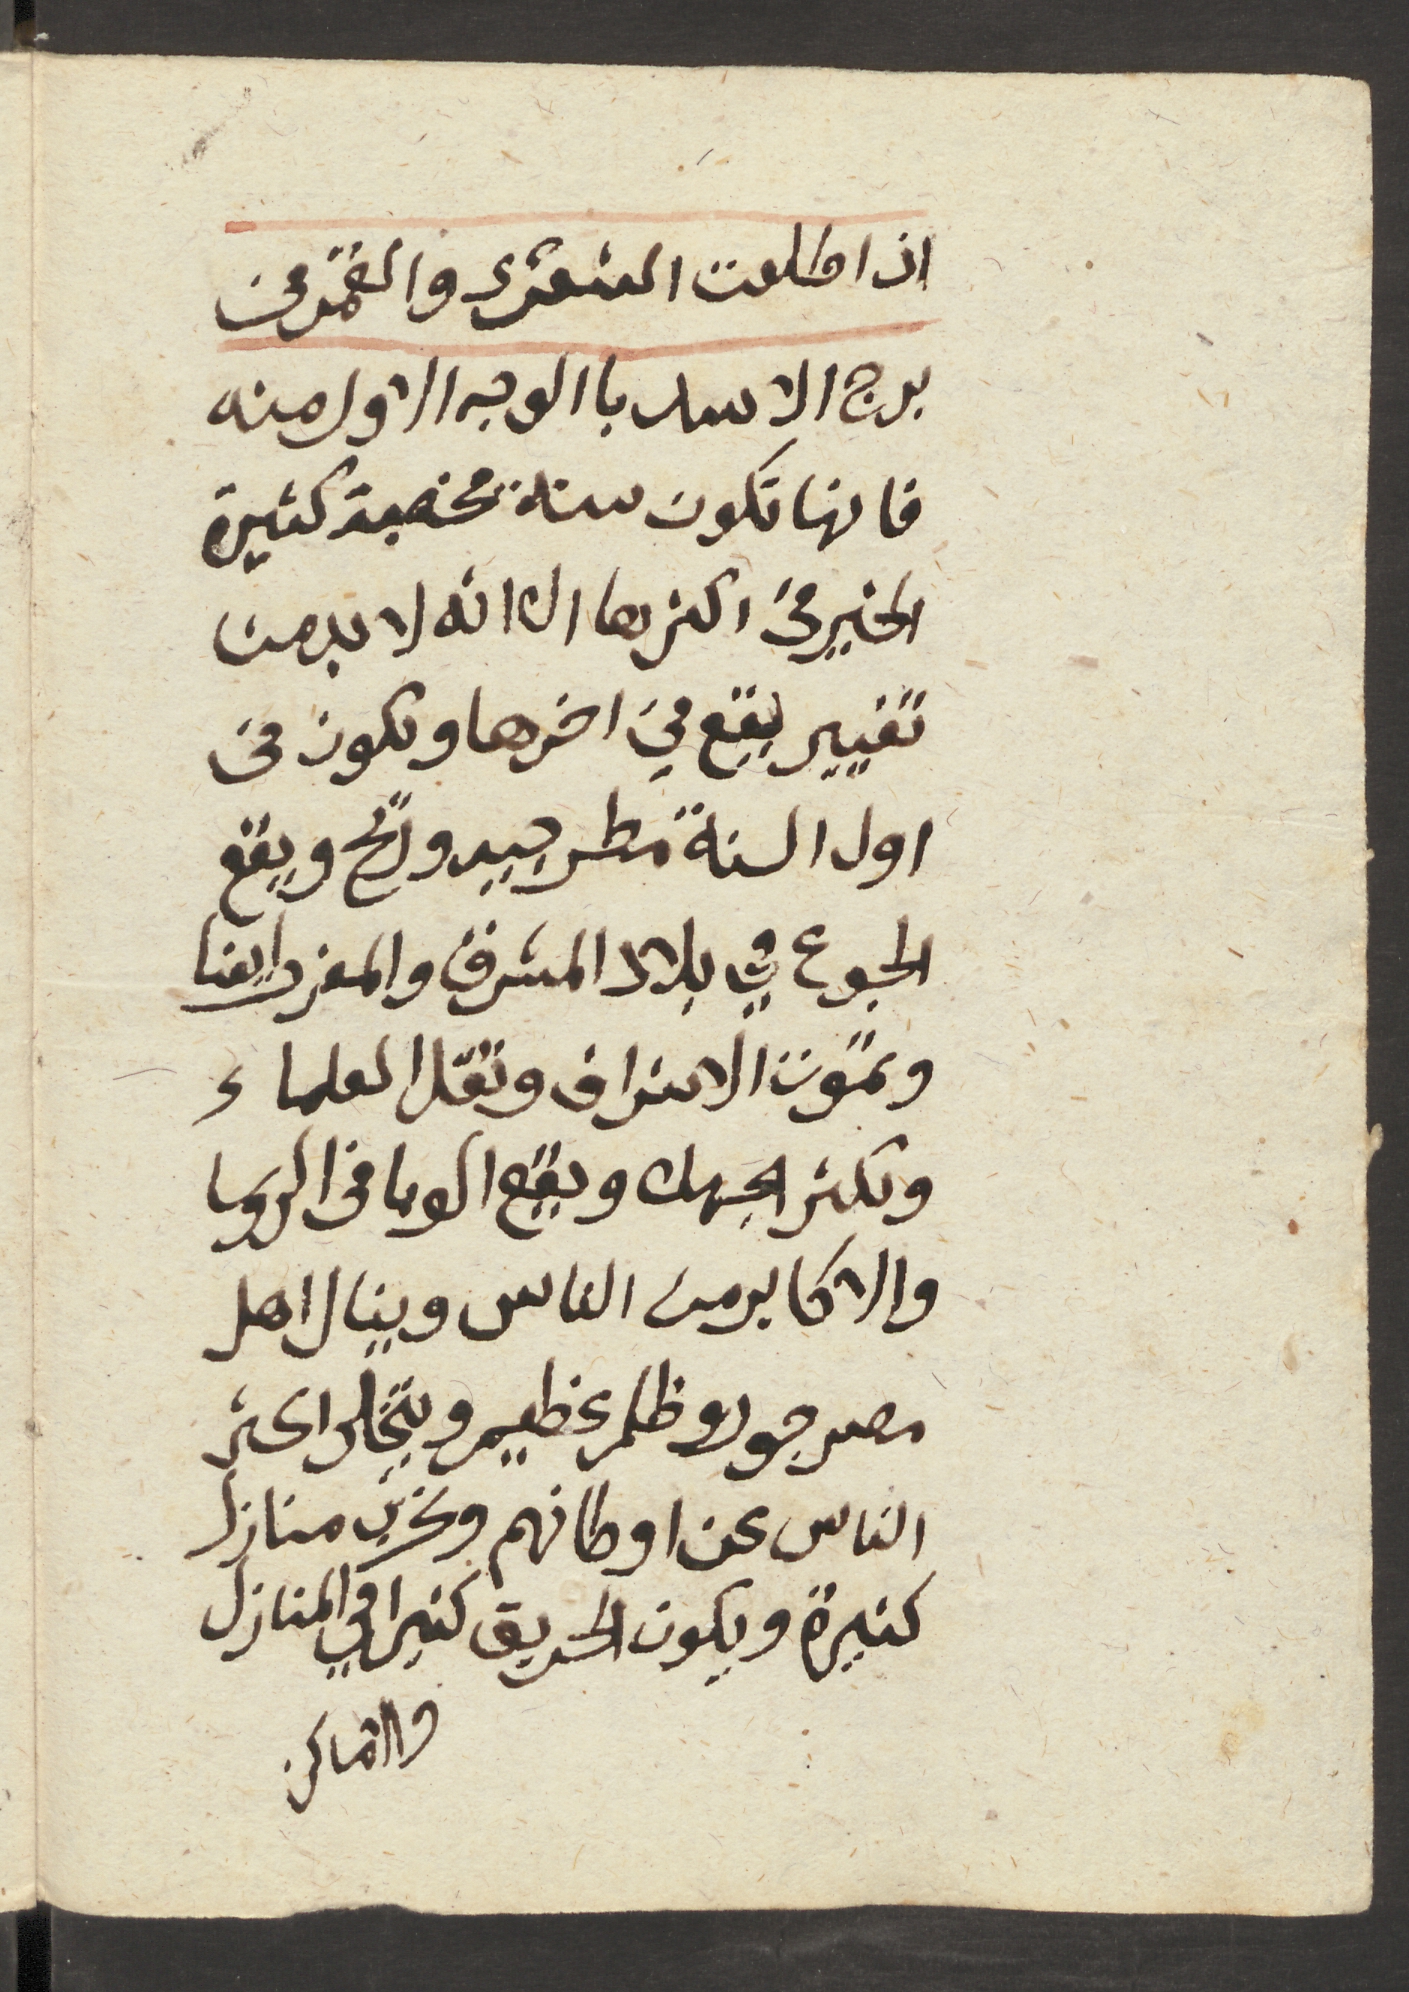 اذا طلعت الشعرى والقمر فى
برج الاسد باالوجه الاول منه
فانها تكون سنة مخصبة كثيرة
الخير فى اكثرها الا انه لا بد من
تغيير يقع في اخرها ويكون فى
اول السنة مطر جيد و ويقع
الجوع في بلاد المشرق والمغرب ايضا
وتموت الاشراف وتقل العلماء
وتكثر الجهال ويقع الوبا فى الروسا
والاكابر من الناس وينال اهل
مصر جور وظلم عظيم اكثر
الناس عن اوطانهم وتخرب منازل
كثيرة ويكون الحريق كثيرا في المنازل
والاماكن